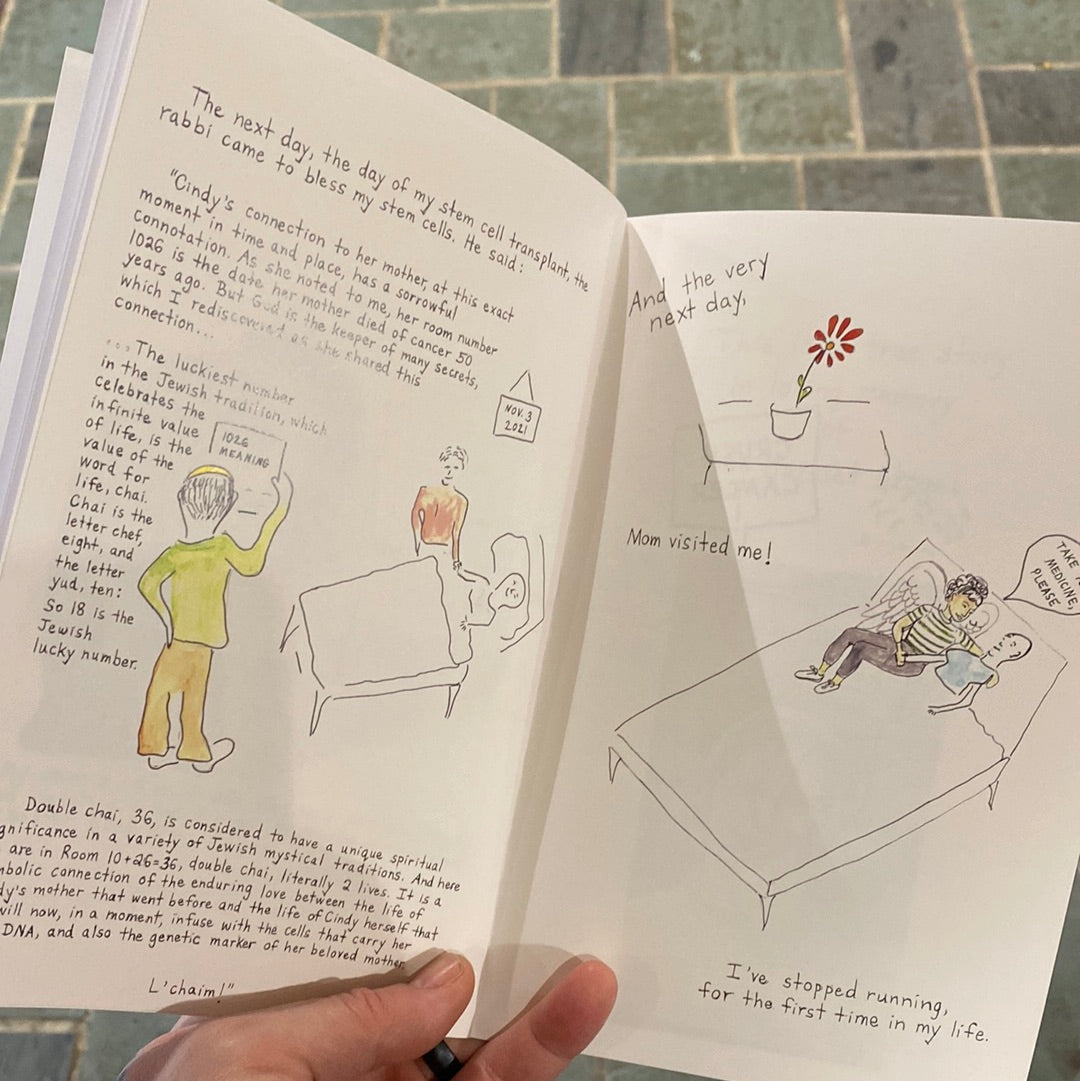 The next day, the day of my stem cell transplant, the
rabbi came to bless my stem cells. He said:
"Cindy's connection to her mother, at this exact
moment in time and place, has a sorrowful
connotation. As she noted to me, her room number
1026 is the date her mother died of cancer 50
years ago. But God is the keeper of many secrets,
which I rediscovered as she shared this
connection...
...The luckiest number
in the Jewish tradition, which
celebrates the
infinite value
of life, is the
value of the
word for
life, chai.
Chai is the
letter chef,
eight, and
the letter
yud, ten:
So 18 is the
Jewish
lucky number.
1026
MEANING
NOV. 3
2021
Double chai, 36, is considered to have a unique spiritual
gnificance in a variety of Jewish mystical traditions. And here
are in Room 10+26=36, double chai, literally 2 lives. It is a
mbolic connection of the enduring love between the life of
dy's mother that went before and the life of Cindy herself that
will now, in a moment, infuse with the cells that carry her
DNA, and also the genetic marker of her beloved mother.
L'chaim!"
And the very
next day,
Mom visited me!
TAKE
MEDICINE,
PLEASE
I've stopped running,
for the first time in my life.